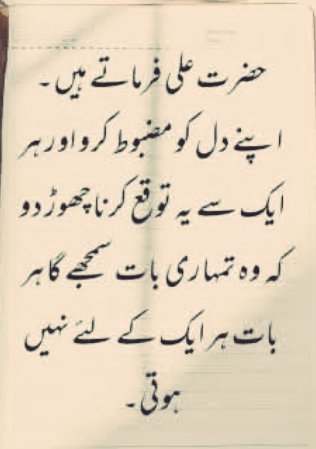 حضرت علی فرماتے ہیں۔
اپنے دل کو مضبوط کرو اور ہر
ایک سے یہ توقع کرنا چھوڑ دو
کہ وہ تمہاری بات سمجھے گا ہر
بات ہر ایک کے لئے نہیں
ہوتی۔